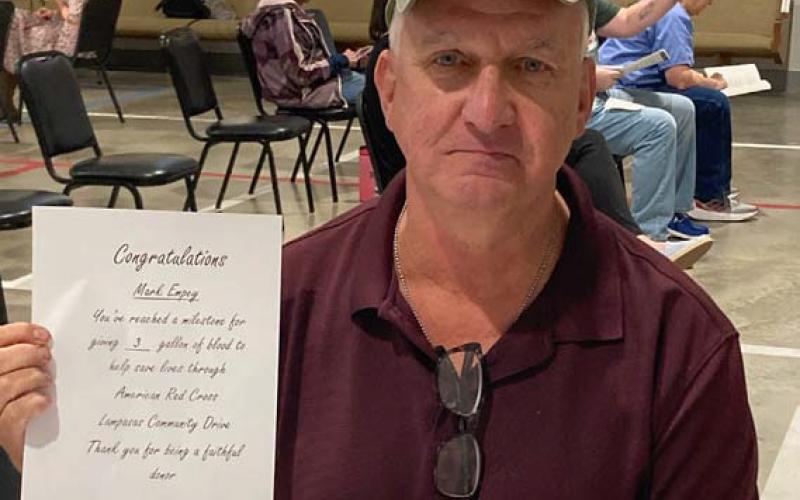 Congratulations
Mark Empey
You've reached a milestone for
giving 3 gallon of blood to
help save lives through
American Red Cross
Lampasas Community Drive
Thank you for being a faithful
donor